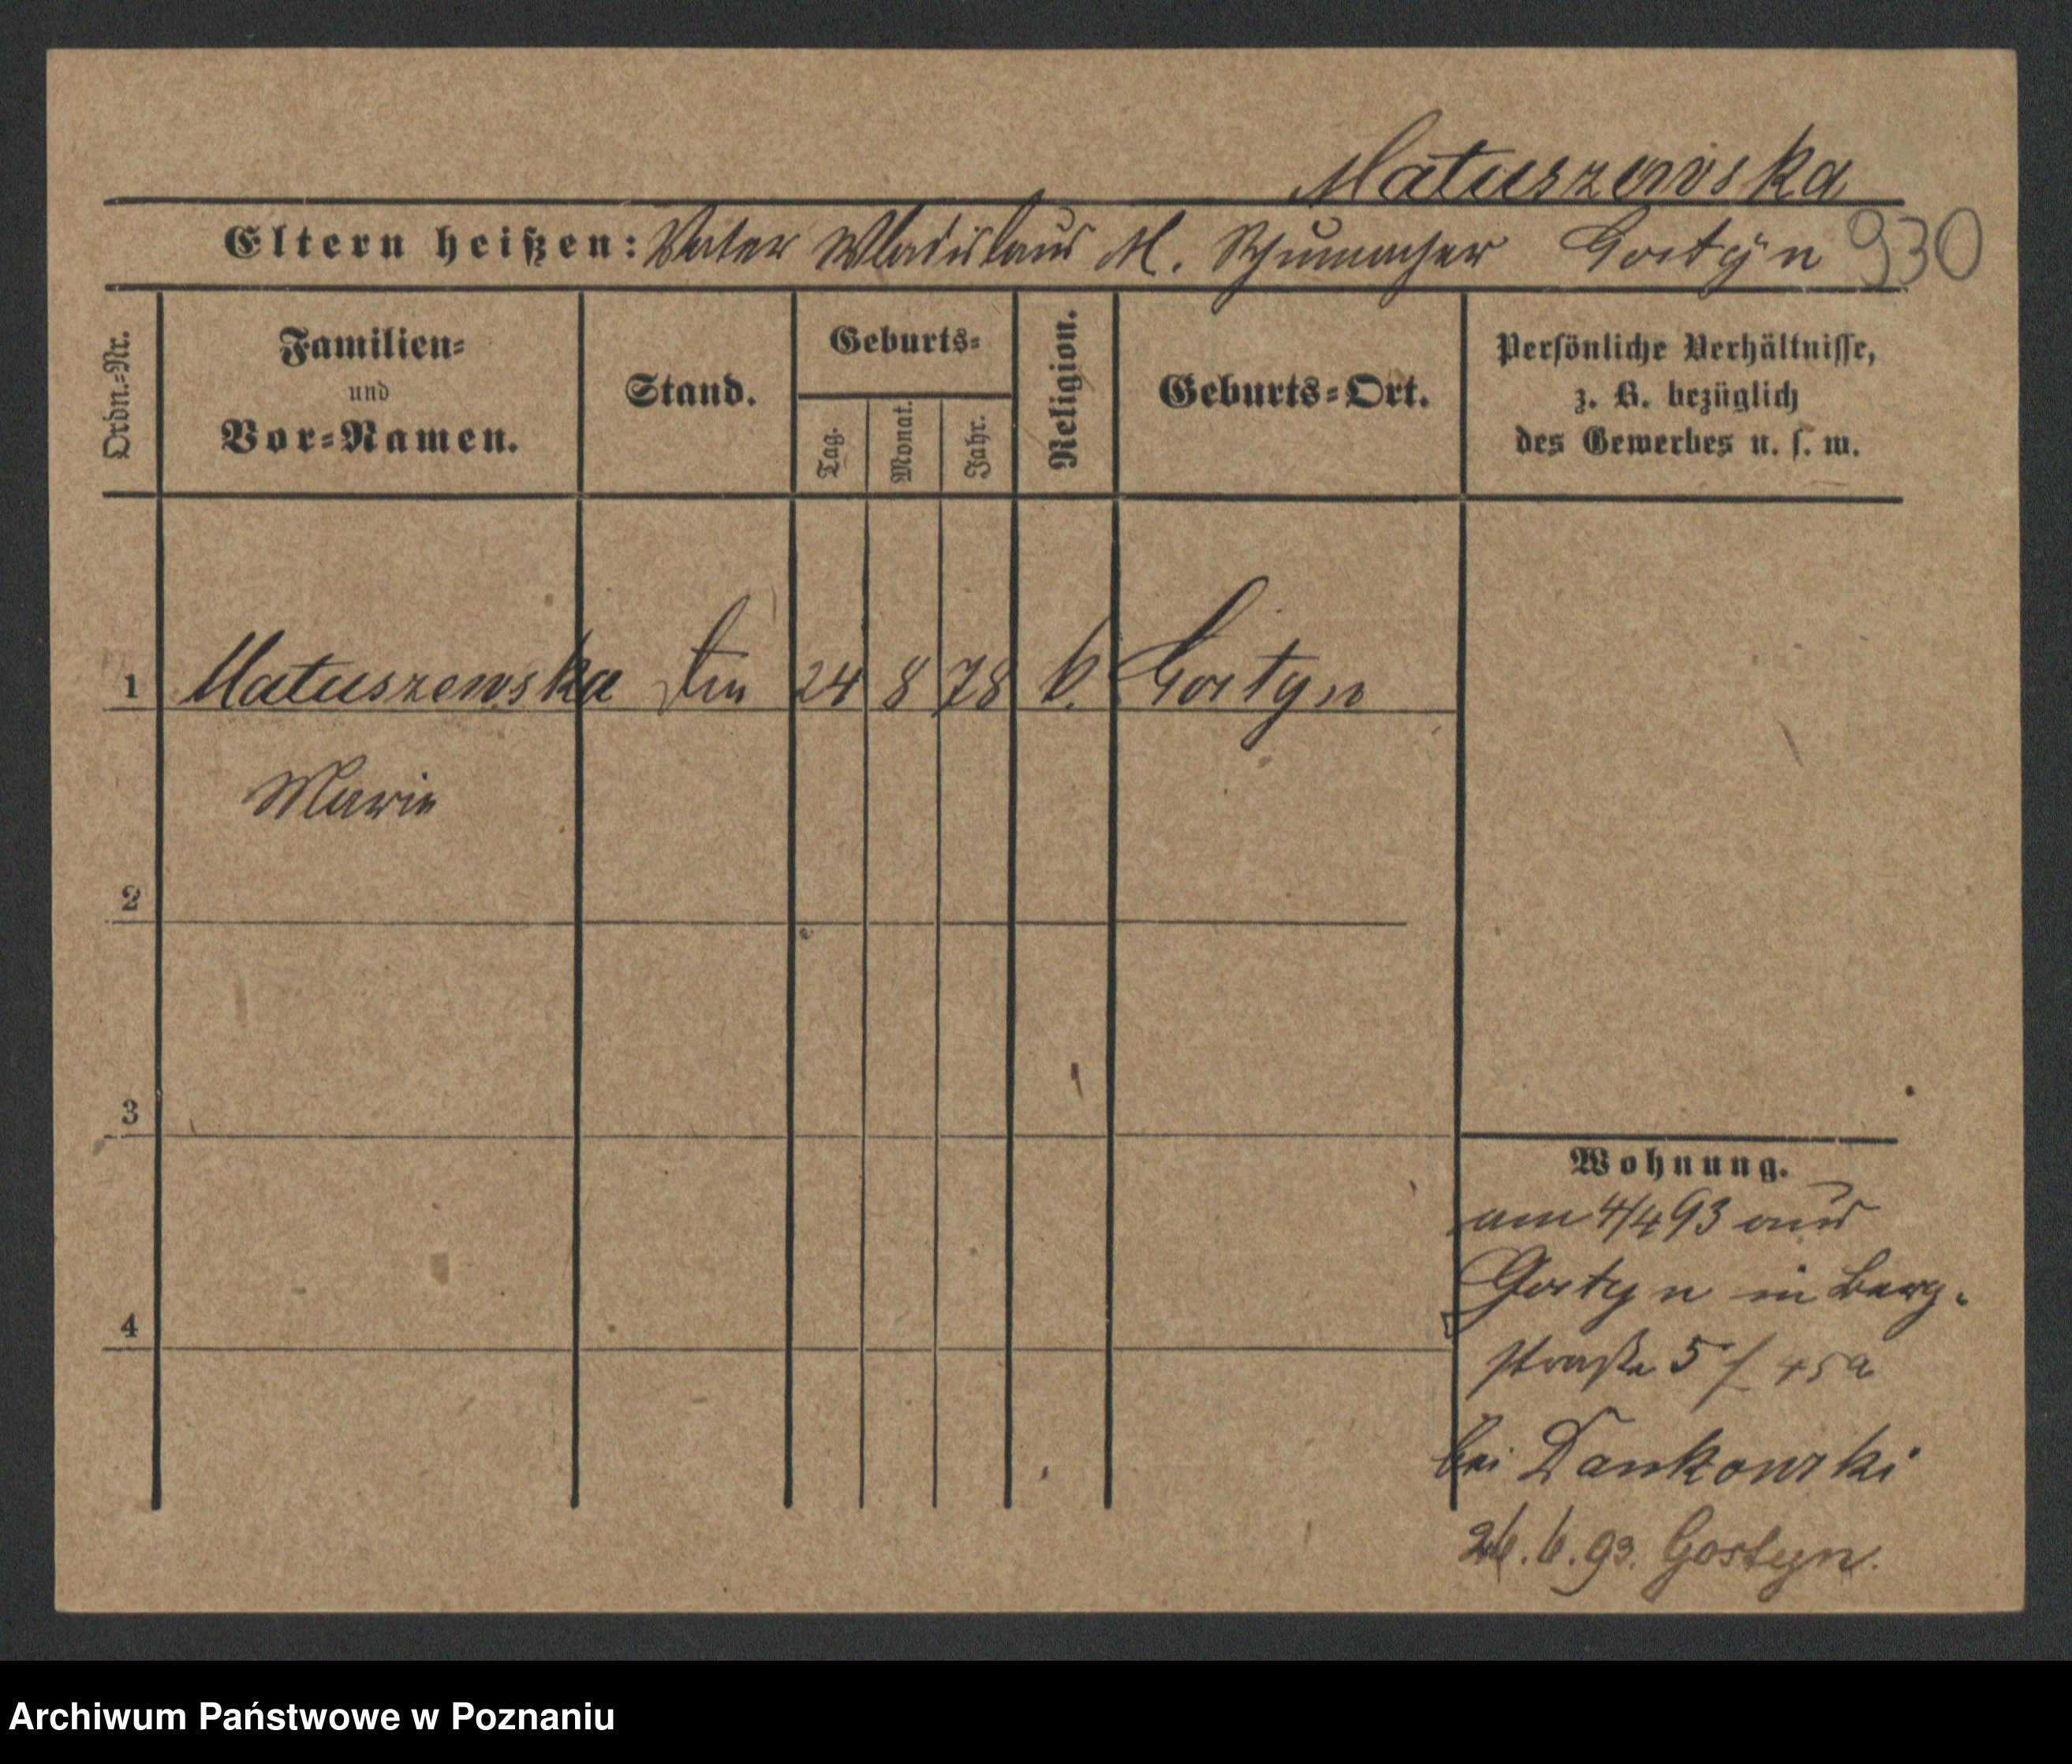 Matuszewska
Eltern heißen: Vater Wladislaus M. Schumacher Gostyn 930
Ordn.-Nr.
Familien-
und
Vor-Namen.
Stand.
Geburts-
Tag.
Monat.
Jahr.
Religion.
Geburts-Ort.
Persönliche Verhältnisse,
z. B. bezüglich
des Gewerbes u. s. w.
1 Matuszewska 24 8 78 k. Gostyn
Marie
2
3
4
Wohnung.
am 4/4 93 aus
Gostyn in Berg-
straße 5
bei Dankowski
26.6.93. Gostyn.
Archiwum Państwowe w Poznaniu